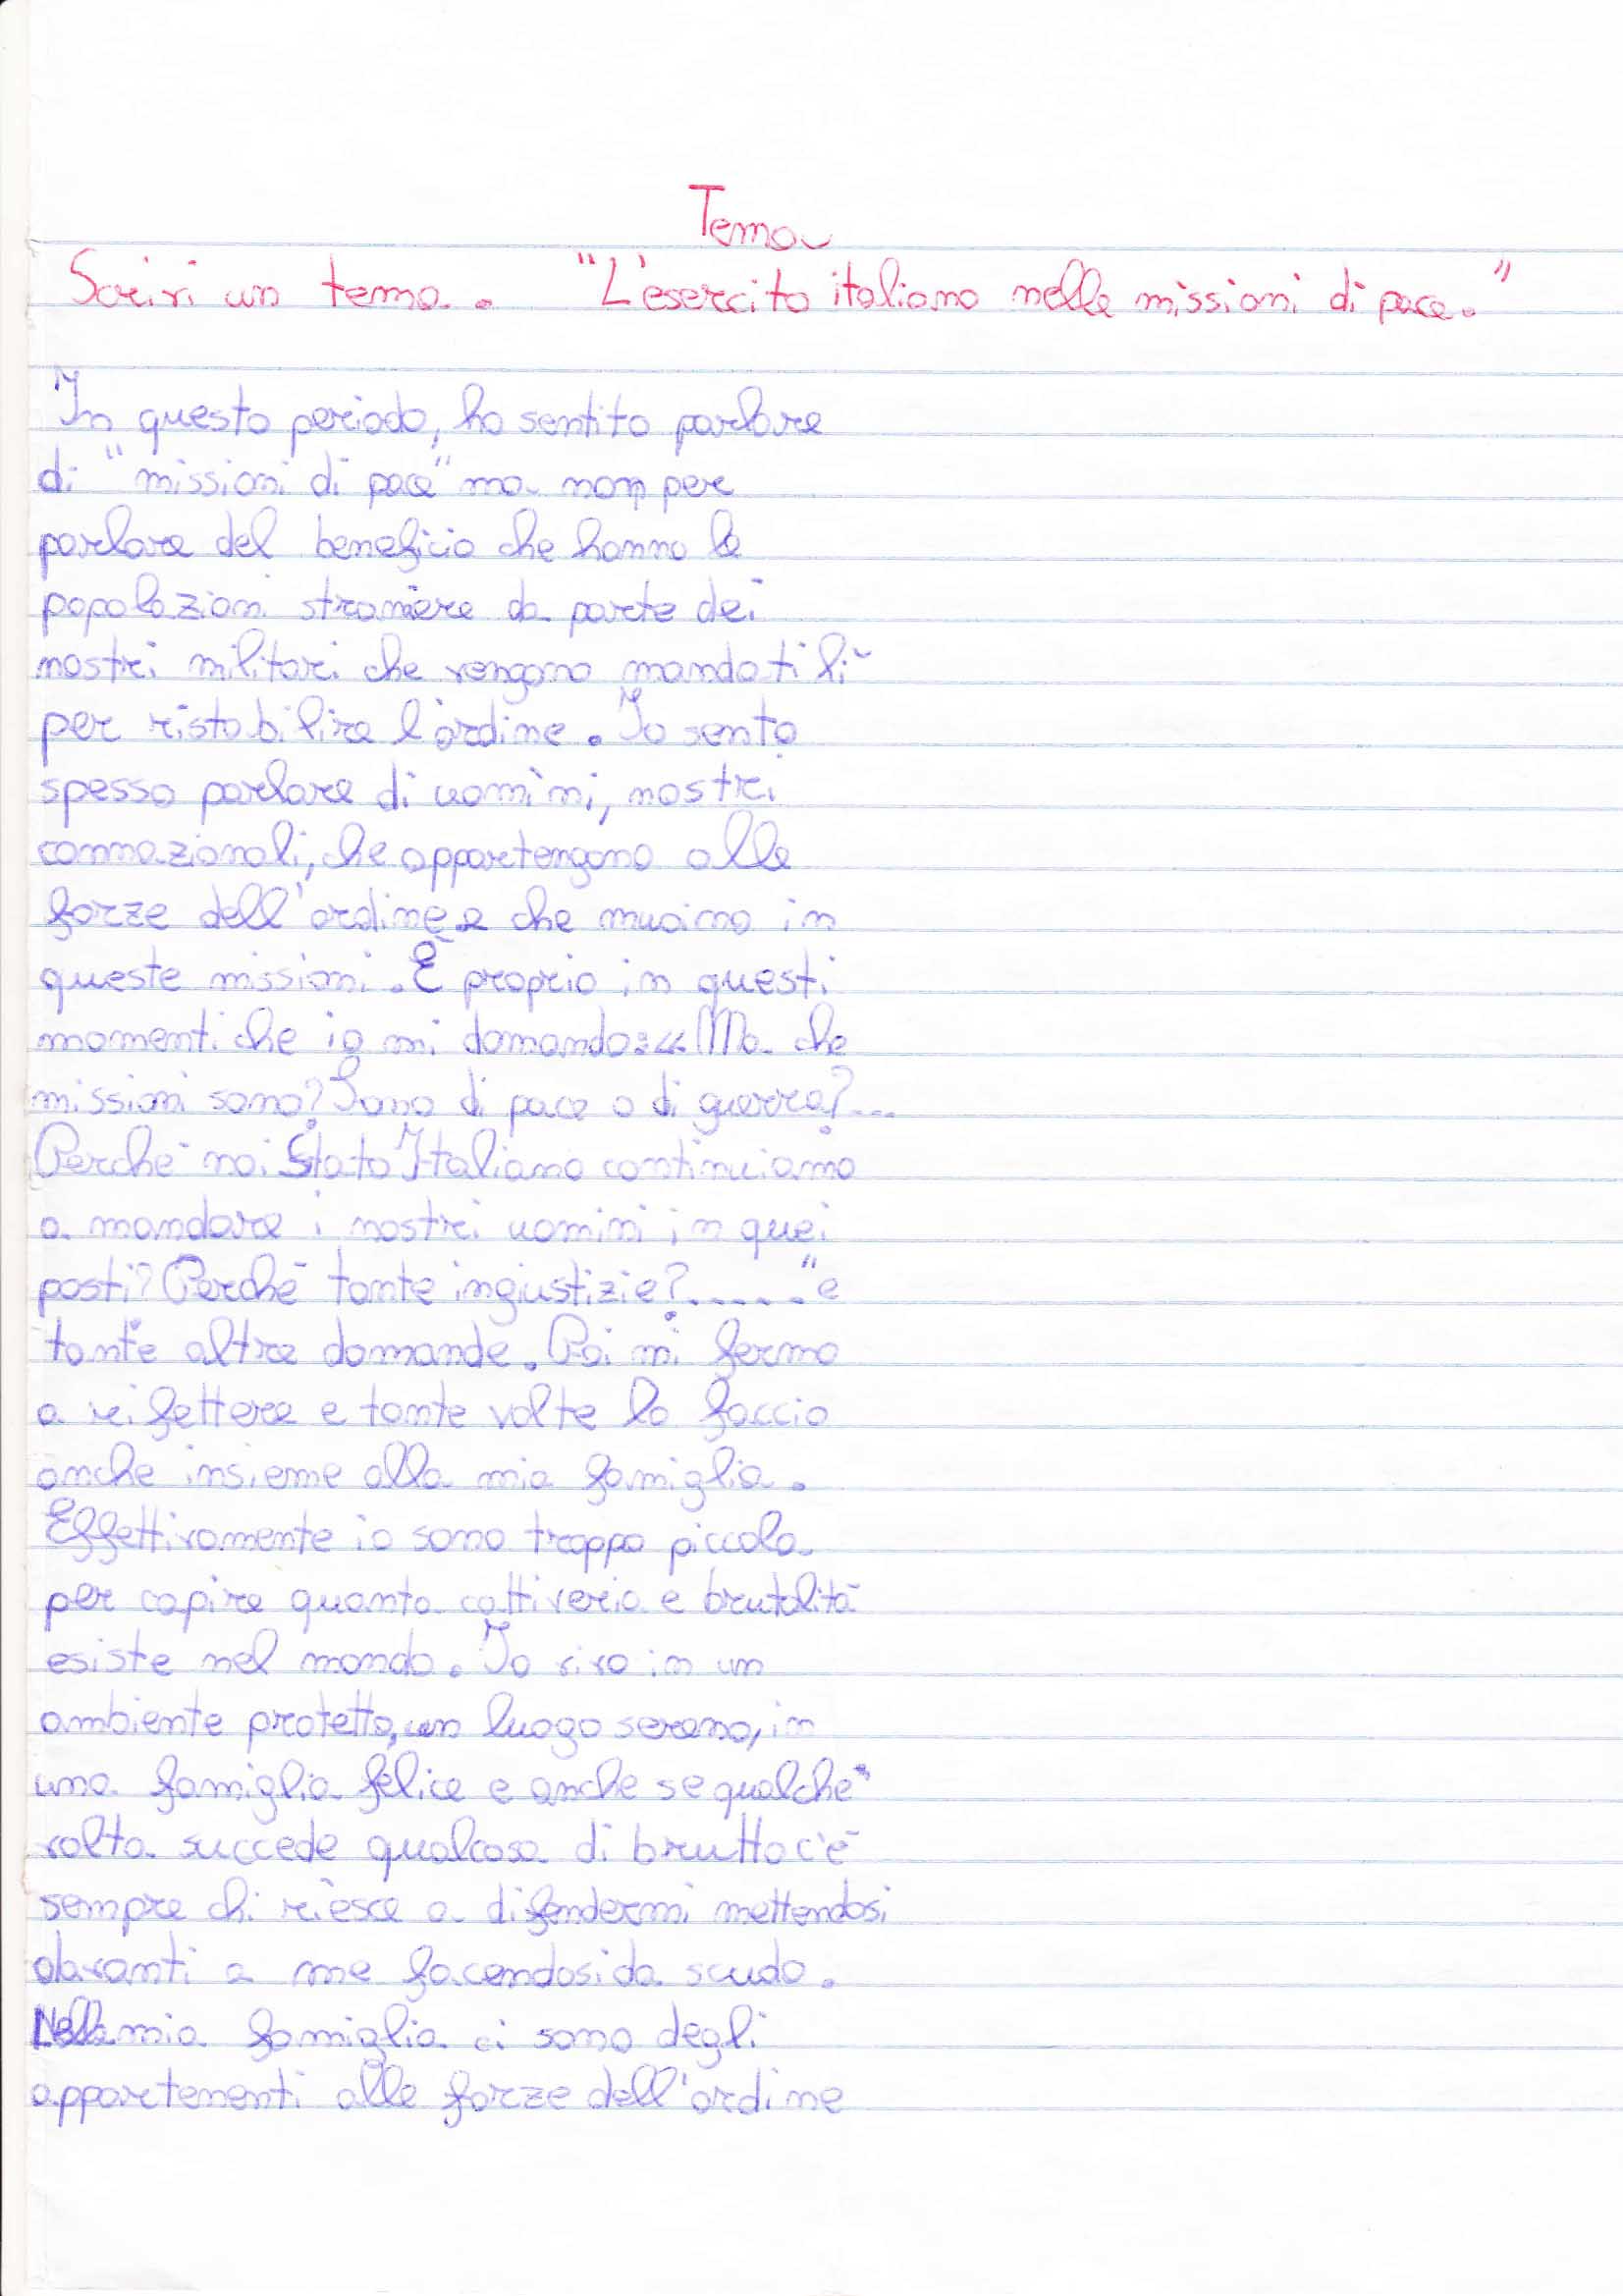 Tema
Scrivi un tema. "L'esercito italiano nelle missioni di pace."
In questo periodo, ho sentito parlare
di "missioni di pace" ma non per
parlare del beneficio che hanno le
popolazioni straniere da parte dei
nostri militari che vengono mandati lì
per ristabilire l'ordine. Io sento
spesso parlare di uomini, nostri
connazionali, che appartengono alle
forze dell'ordine e che muoino in
queste missioni. È proprio in questi
momenti che io mi domando: «Ma che
missioni sono? Sono di pace o di guerra?...
Perchè noi Stato Italiano continuiamo
a mandare i nostri uomini in quei
posti? Perchè tante ingiustizie?....." e
tante altre domande. Poi mi fermo
a rifettere e tante volte lo faccio
anche insieme alla mia famiglia.
Effettivamente io sono troppo piccola
per capire quanta cattiveria e brutalità
esiste nel mondo. Io vivo in un
ambiente protetto, un luogo sereno, in
una famiglia felice e anche se qualche
volta succede qualcosa di brutto c'è
sempre chi riesce a difendermi mettendosi
davanti a me facendosi da scudo.
Nella mia famiglia ci sono degli
appartenenti alle forze dell'ordine